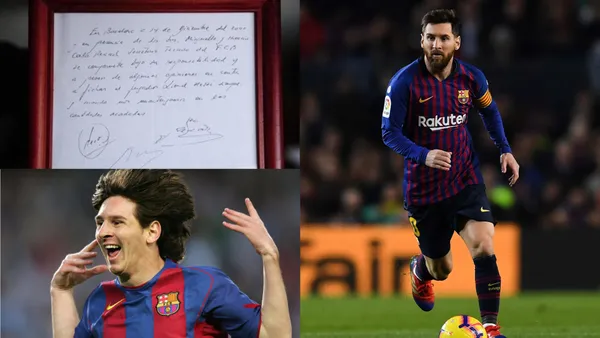 En Barcelona a 14 de Diciembre del 2000
y en presencia de los Srs. Minguella y Horacio
Carles Rexach Secretario Técnico del F.C.B
se compromete bajo su responsabilidad y
a pesar de algunas opiniones en contra
a fichar al jugador Lionel Messi siempre
y cuando nos mantengamos en las
cantidades acordadas
Rakuten